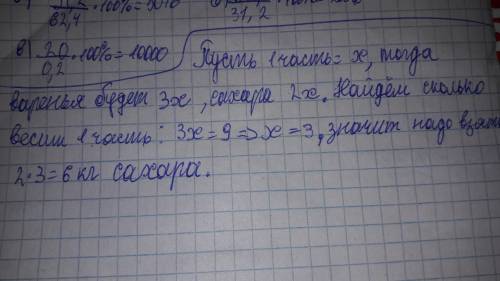 82,4 · 100% =
31,2
в) 20/0,2 · 100% = 10000
Пусть 1 часть = x, тогда
варенья будет 3x, сахара 2x. Найдём сколько
весит 1 часть: 3x = 9 => x = 3, значит надо взять
2·3=6 кг сахара.